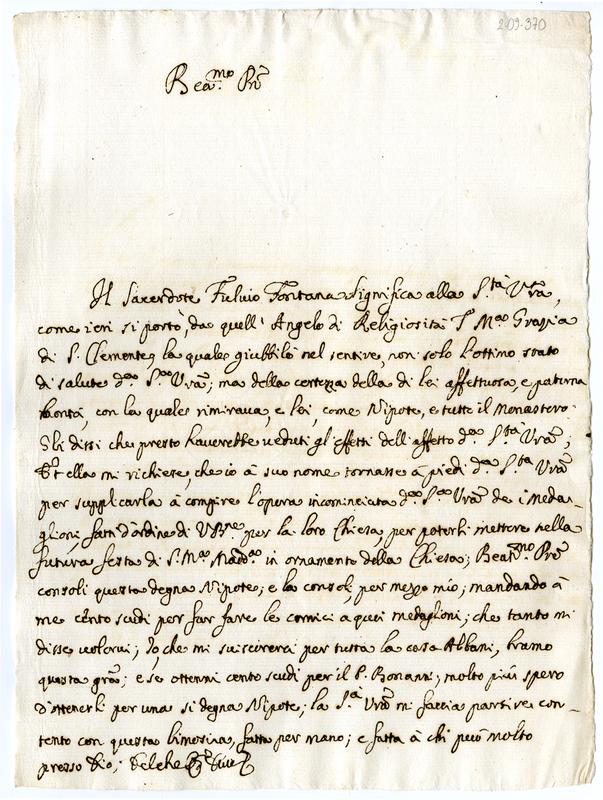 209-370
Bea.mo Pre
Il Sacerdote Fulvio Fontana significa alla S.tà Vra,
come ieri si portò, da quell' Angelo di Religiosità S Ma Grazia
di S. Clemente, la quale giubbilò nel sentire, non solo l'ottimo stato
di salute da Stà Vra; ma della certezza della di lei affettuosa, e paterna
bontà, con la quale rimirava, e lei, come Nipote, e tutto il Monastero.
Gli dissi che presto haverebbe veduti gl'effetti dell'affetto da S.tà Vra;
Et ella mi richiese, che io à suo nome tornasse à piedi da S.tà Vra
per supplicarla à compire l'opera incominciata da S.tà Vra de i Meda-
glioni, fatti d'ordine di VBne per la loro Chiesa, per poterli mettere nella
futura festa di S. Ma Madda in ornamento della Chiesa; Beatmo Pre
consoli questa degna Nipote; e la consoli per mezzo mio; mandando à
me cento scudi per far fare le cornici a quei medaglioni; che tanto mi
disse volervi; Io, che mi sviscererei per tutta la casa Albani, bramo
questa gra; e se ottenni cento scudi per il P. Bonanni; molto più spero
d'ottenerli per una si degna Nipote; la S.tà Vra mi faccia partire con-
tento con questa limosina, fatta per mano; e fatta à chi può molto
presso Dio; Delche